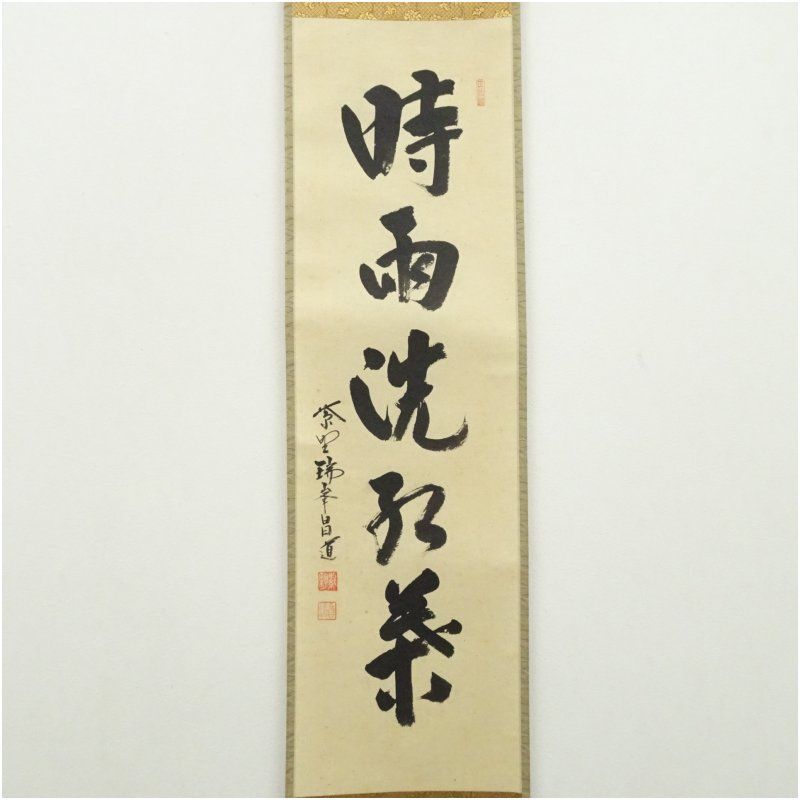 時雨洗紅葉
紫野瑞峯昌道